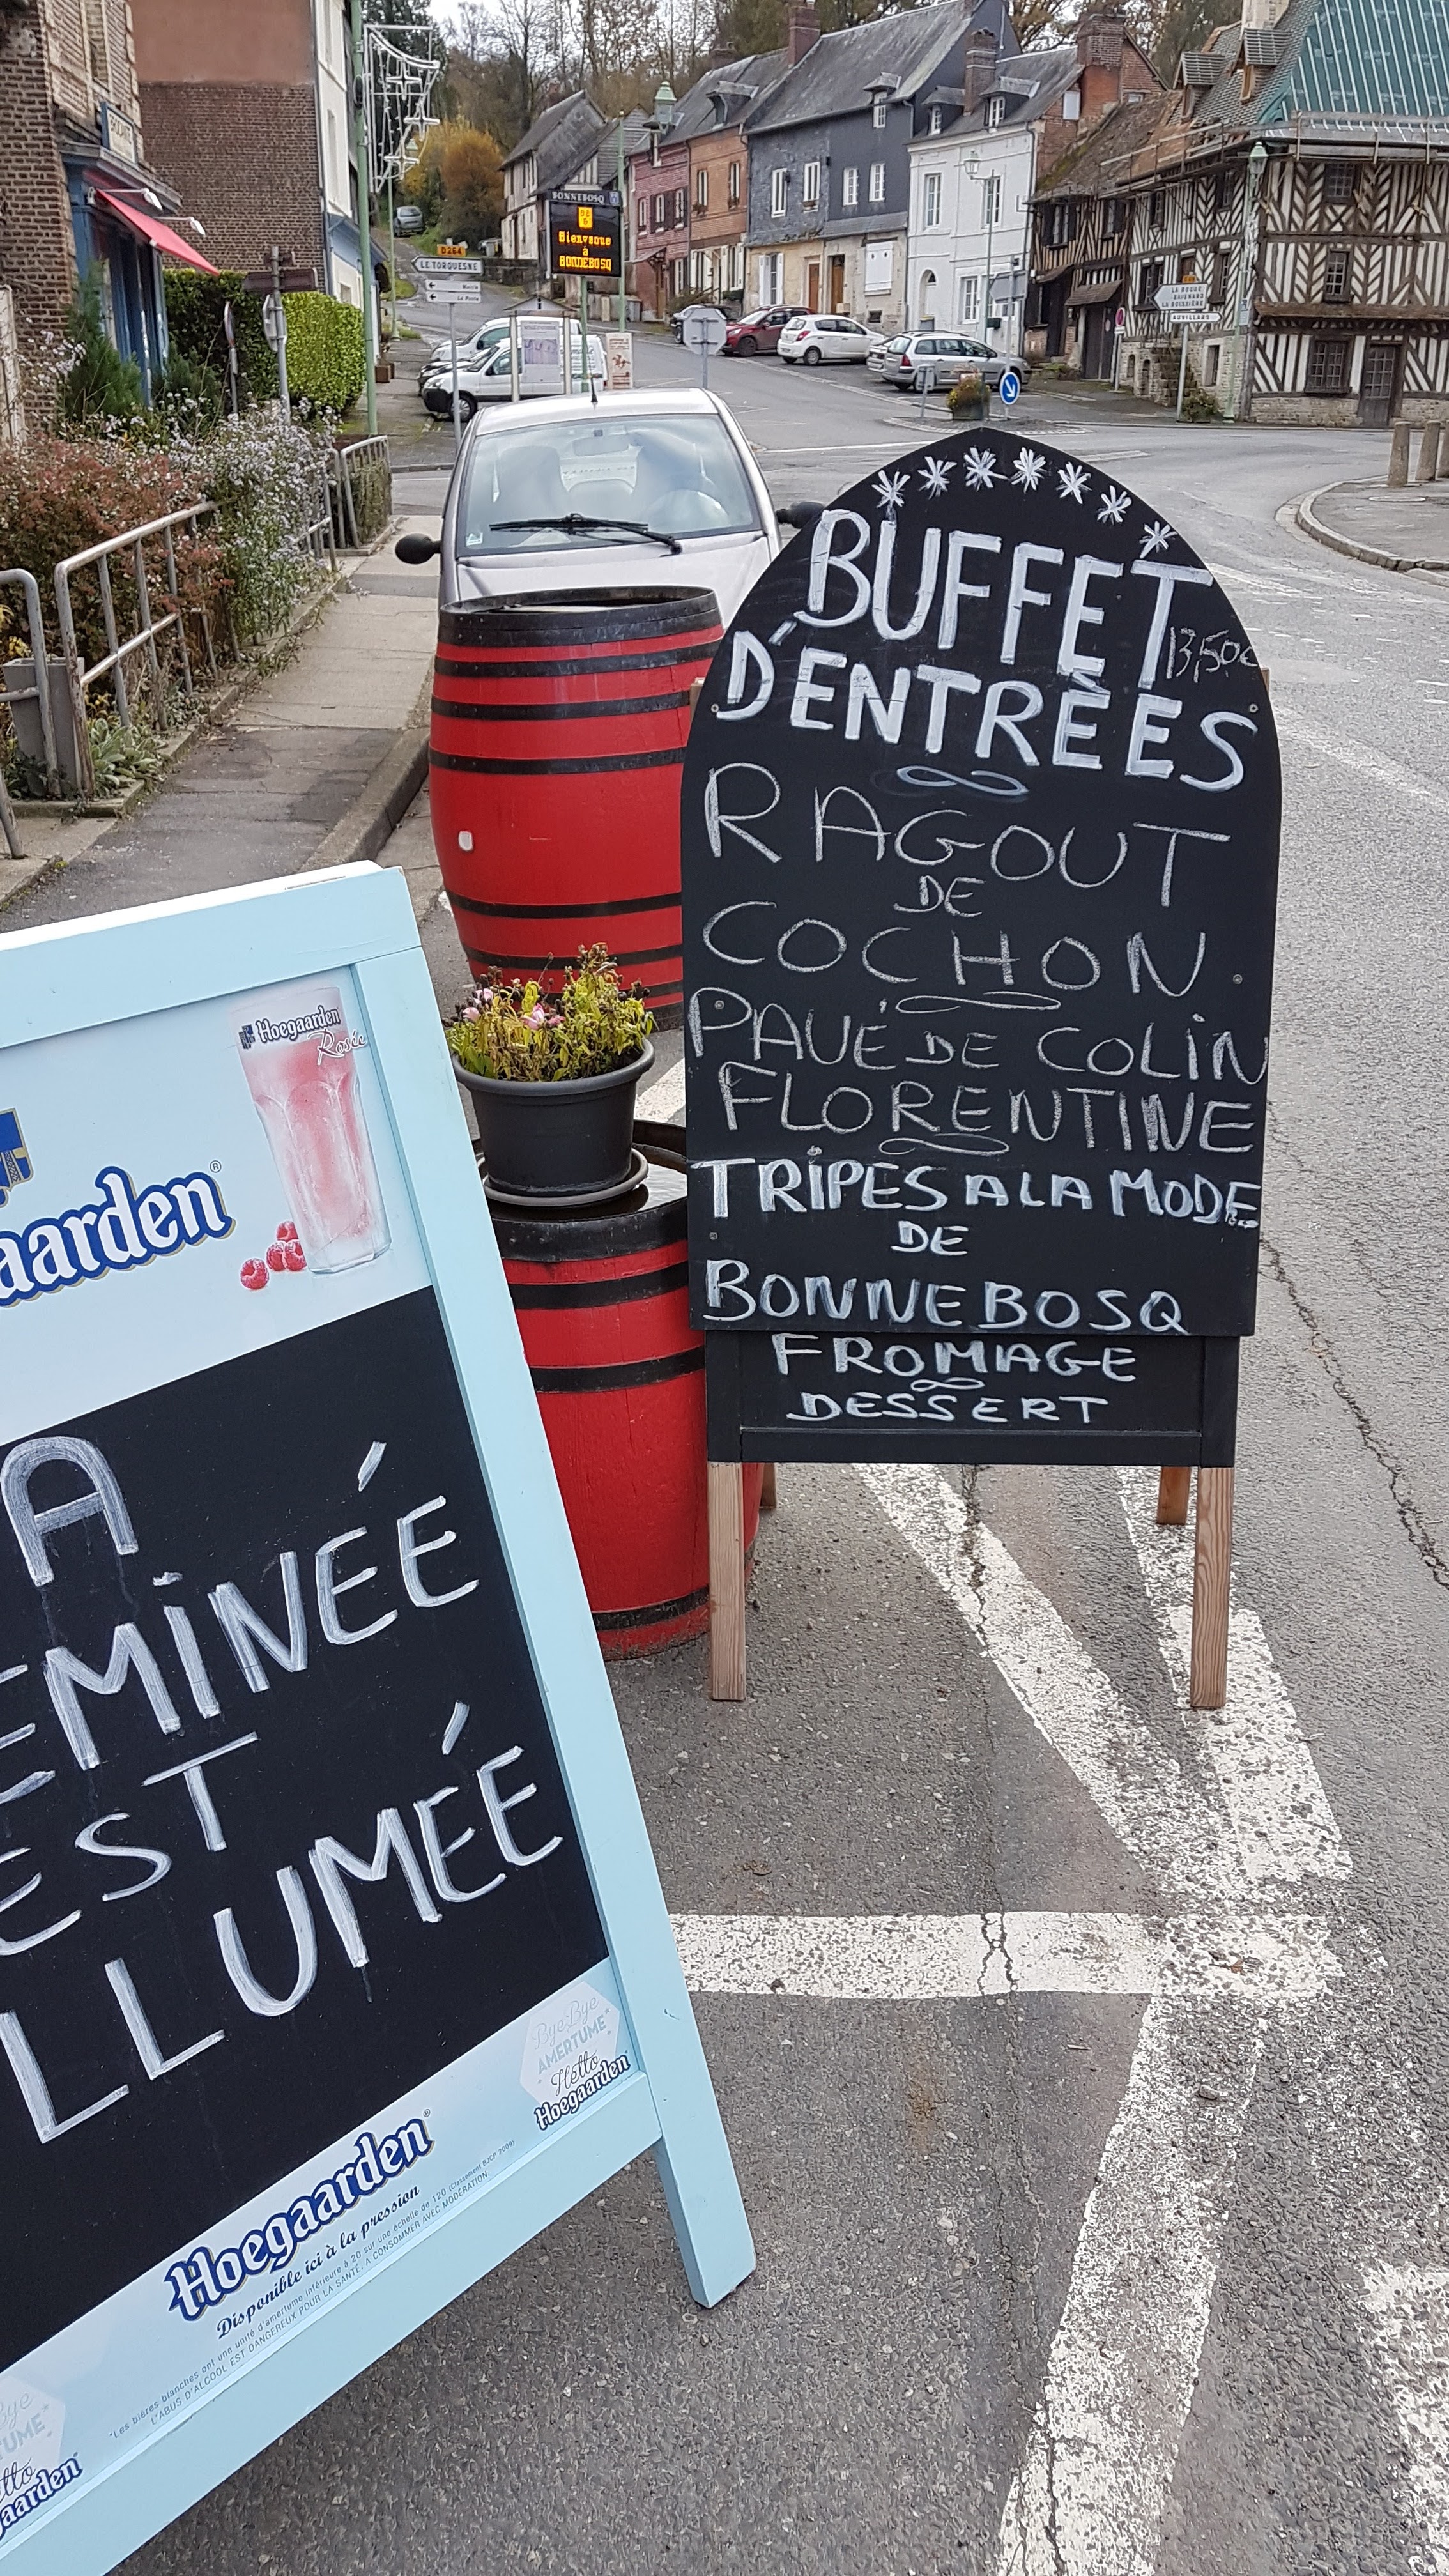 BONNEBOSQ
Bienvenue
à
BONNEBOSQ
D264
LE TORQUESNE
Mairie
La Poste
LA ROQUE
BAIGNARD
LA BOISSIÈRE
AUVILLARS
BUFFET
13,50€
D'ENTRÈES
RAGOUT
DE
COCHON
PAVÉ DE COLIN
FLORENTINE
TRIPES A LA MODE
DE
BONNEBOSQ
FROMAGE
DESSERT
Hoegaarden
Rosée
aarden®
A
EMINÉE
EST
LLUMÉE
Bye Bye
AMERTUME
Hello
Hoegaarden
Hoegaarden®
Disponible ici à la pression
*Les bières blanches ont une unité d'amertume inférieure à 20 sur une échelle de 120 (Classement BJCP 2009)
L'ABUS D'ALCOOL EST DANGEREUX POUR LA SANTÉ, A CONSOMMER AVEC MODÉRATION.
ye
TUME
aarden